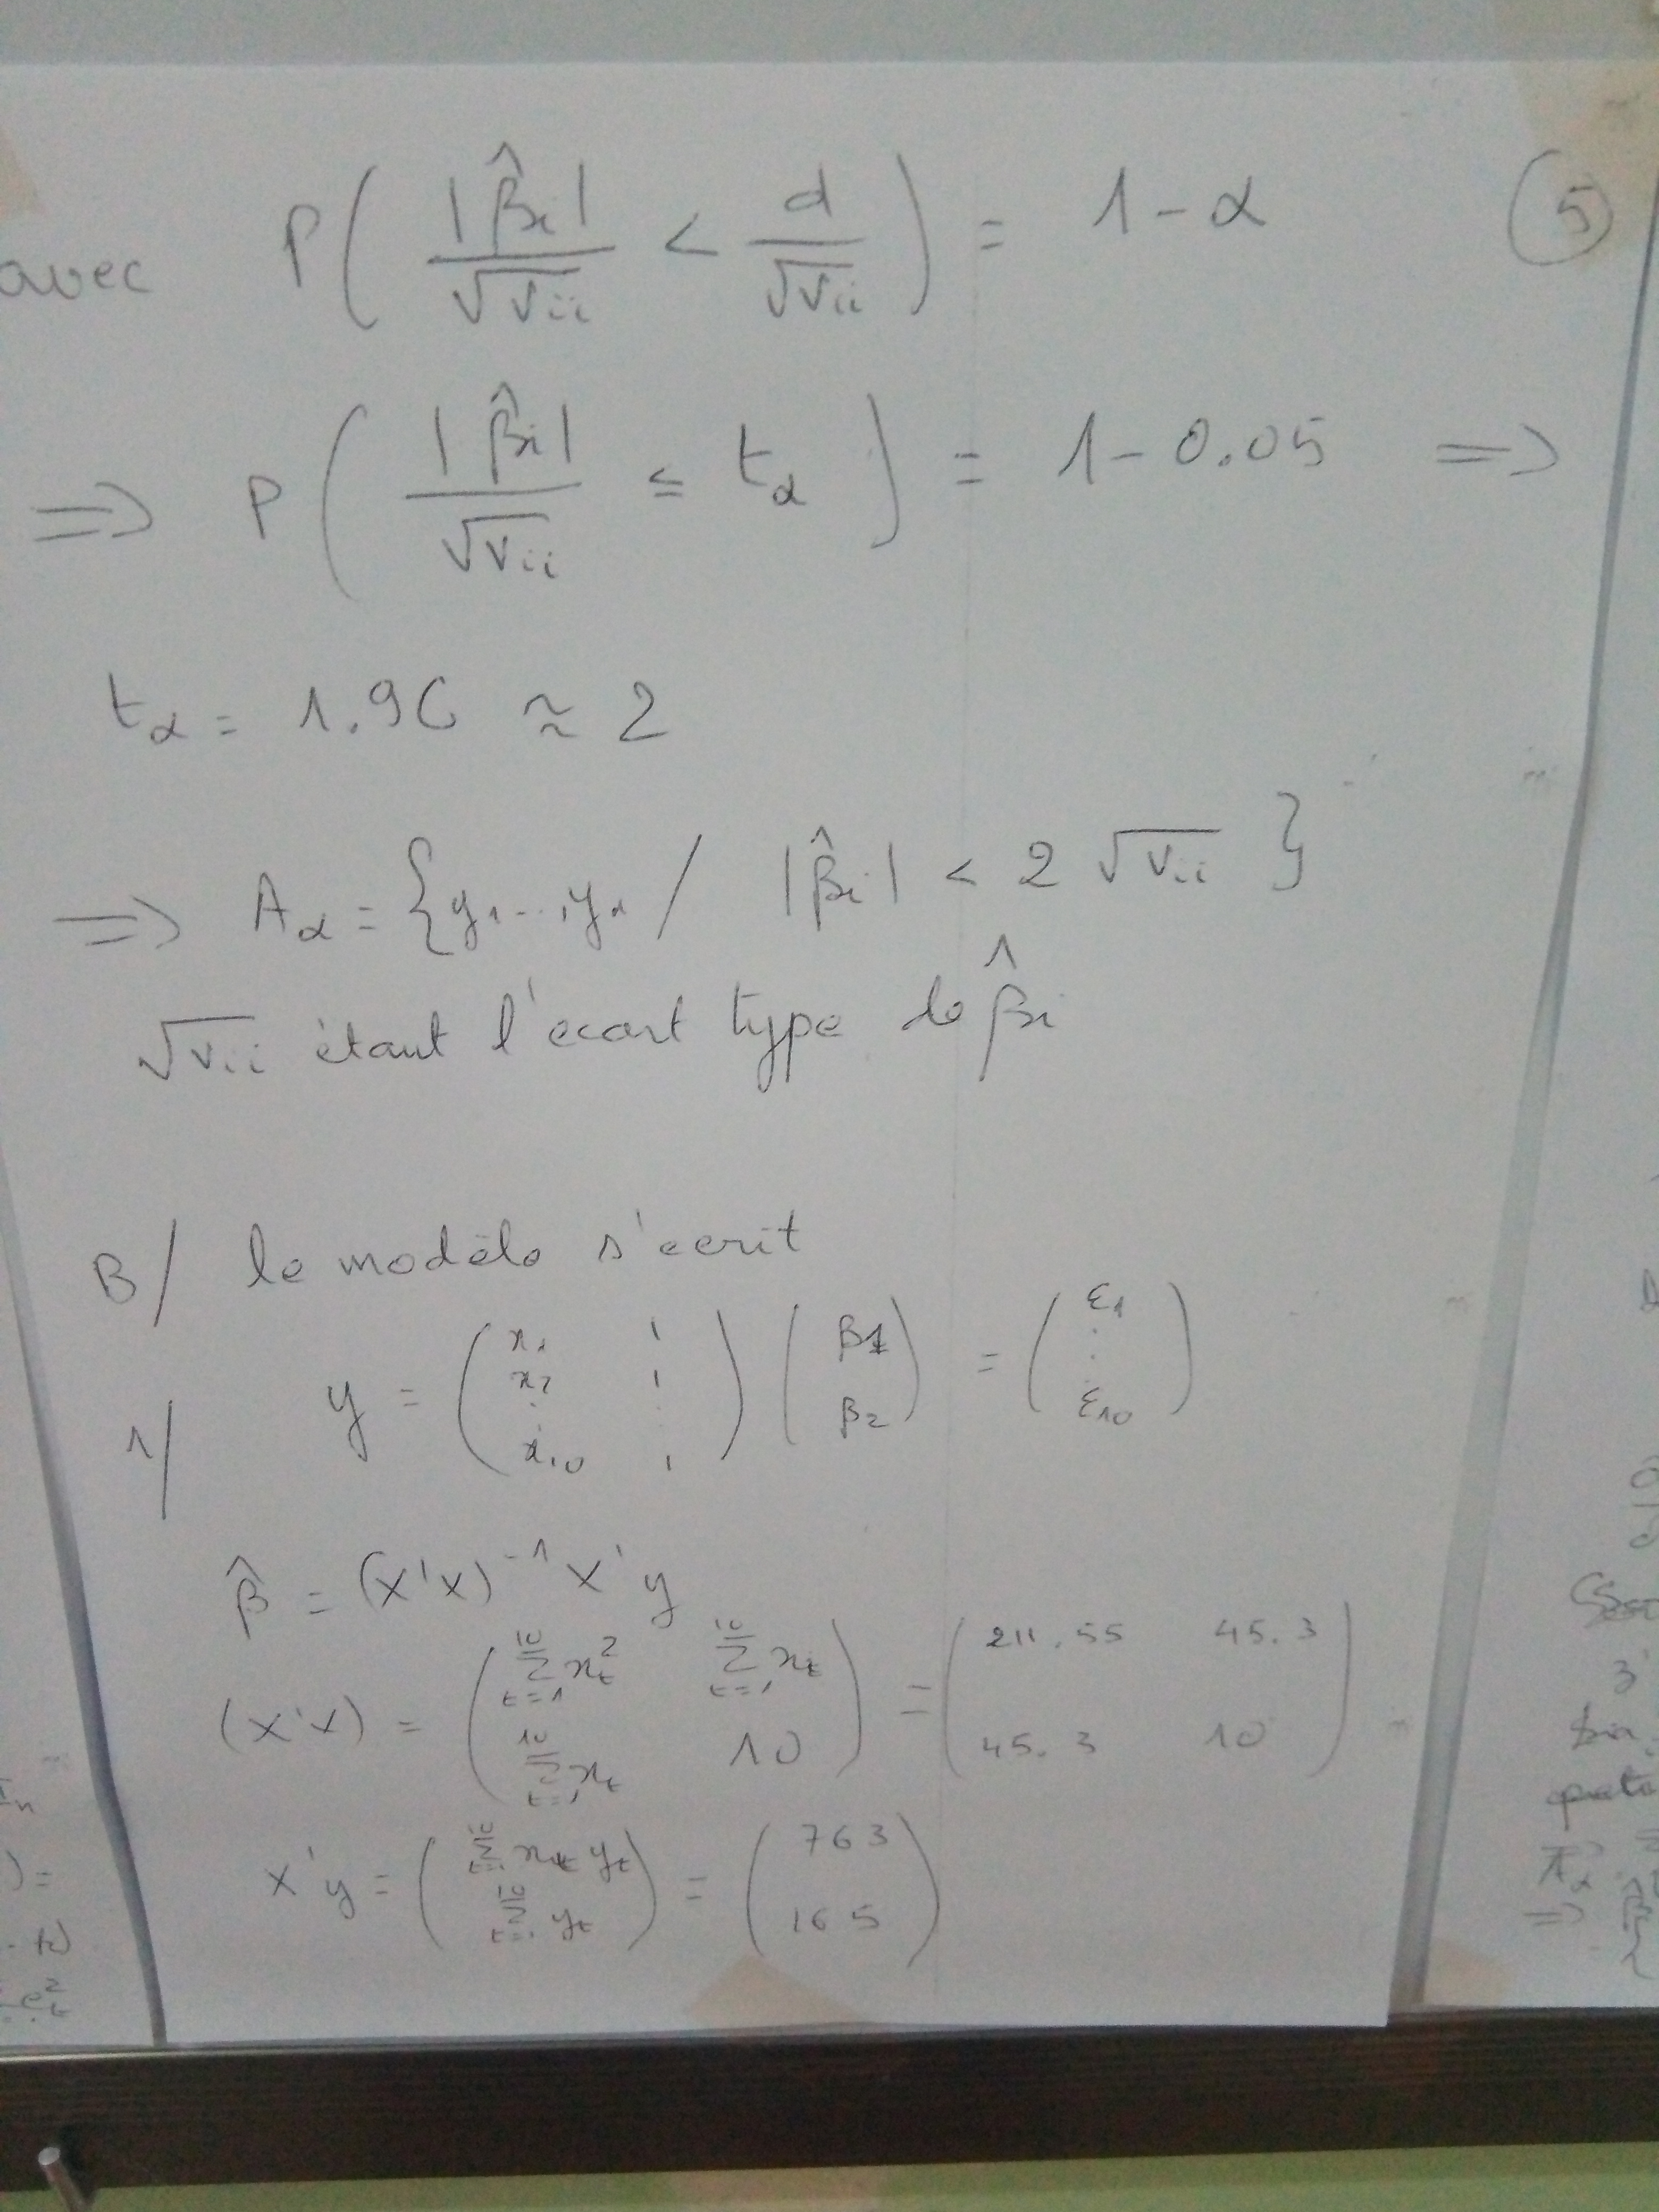 avec P( |β̂i| / √vii < d / √vii ) = 1 - α (5)
=> P( |β̂i| / √vii ≤ tα ) = 1 - 0.05 =>
tα = 1.96 ≈ 2
=> Aα = { y1...,yn / |β̂i| < 2 √vii }
√vii étant l'ecart type de β̂i
B/ le modèle s'ecrit
1/ y = ( x1 1 ; x2 1 ; ⋮ ⋮ ; x10 1 ) ( β1 ; β2 ) = ( ε1 ; ⋮ ; ε10 )
β̂ = (X'X)^-1 X'y
(X'X) = ( Σ_{t=1}^{10} xt² Σ_{t=1}^{10} xt ; Σ_{t=1}^{10} xt 10 ) = ( 211.55 45.3 ; 45.3 10 )
X'y = ( Σ_{t=1}^{10} xt yt ; Σ_{t=1}^{10} yt ) = ( 763 ; 165 )